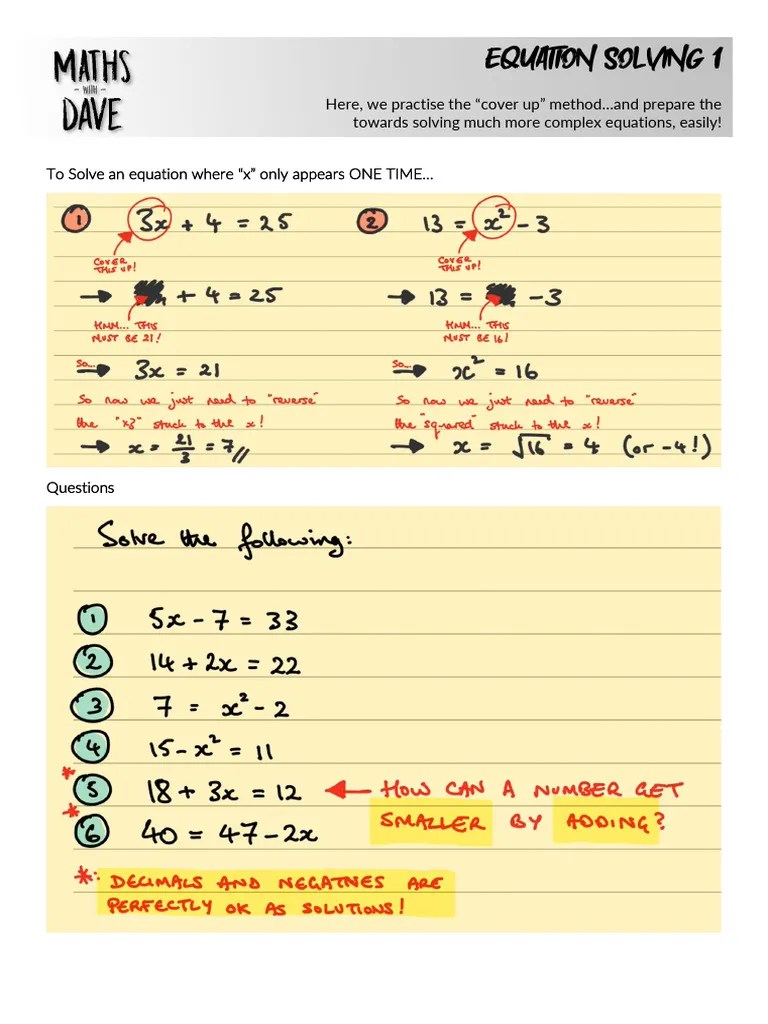 MATHS
- WITH -
DAVE
EQUATION SOLVING 1
Here, we practise the “cover up” method...and prepare the
towards solving much more complex equations, easily!
To Solve an equation where “x” only appears ONE TIME...
1 3x + 4 = 25
COVER
THIS UP!
→ + 4 = 25
HMM... THIS
MUST BE 21!
So... → 3x = 21
So now we just need to "reverse"
the "x3" stuck to the x!
→ x = 21/3 = 7//
2 13 = x² - 3
COVER
THIS UP!
→ 13 = - 3
HMM... THIS
MUST BE 16!
So... → x² = 16
So now we just need to "reverse"
the "squared" stuck to the x!
→ x = √16 = 4 (or -4!)
Questions
Solve the following:
1 5x - 7 = 33
2 14 + 2x = 22
3 7 = x² - 2
4 15 - x² = 11
* 5 18 + 3x = 12 ← HOW CAN A NUMBER GET
SMALLER BY ADDING?
* 6 40 = 47 - 2x
*: DECIMALS AND NEGATIVES ARE
PERFECTLY OK AS SOLUTIONS!